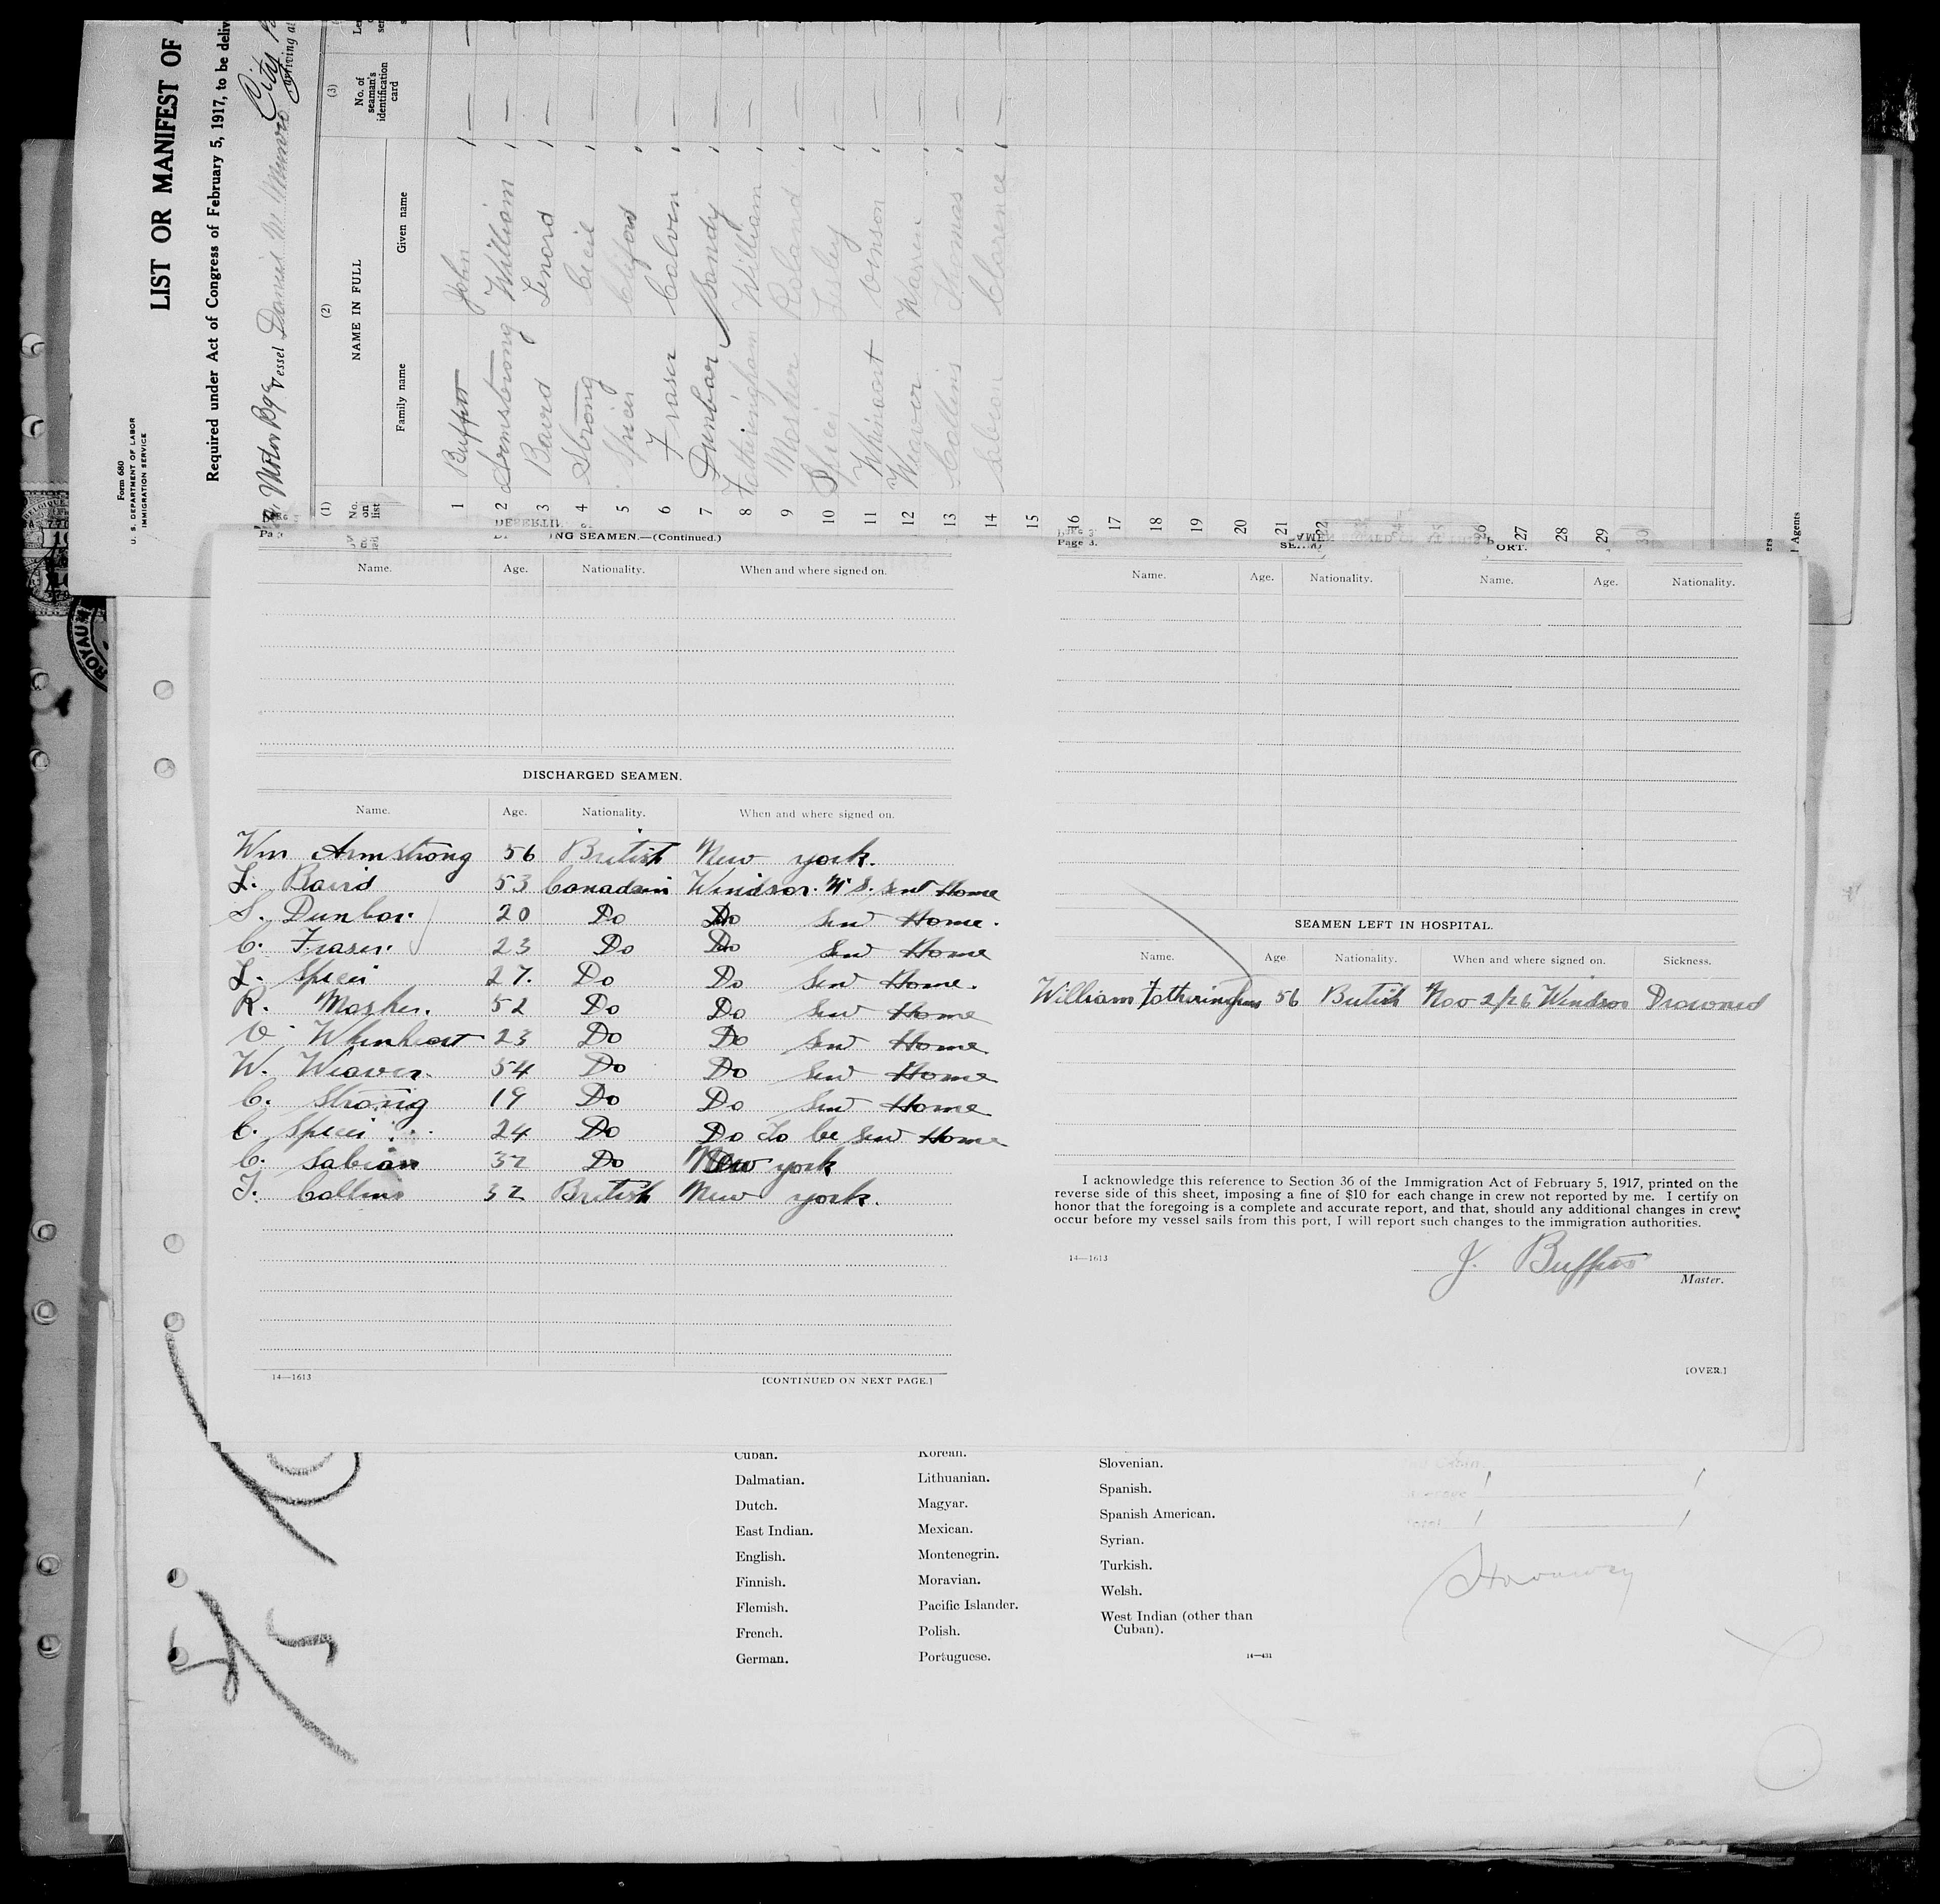 Form 680
U. S. DEPARTMENT OF LABOR
IMMIGRATION SERVICE
LIST OR MANIFEST OF
Required under Act of Congress of February 5, 1917, to be
Vessel Daniel M. Munro
arriving at
City
(1) (2) (3)
No. on list
NAME IN FULL
No. of seaman's identification card
Family name Given name
1 Buffett John
2 Armstrong William
3 Baird Lenord
4 Strong Cecil
5 Spicer Cliford
6 Fraser Calvin
7 Dunbar Sandy
8 Fotheringham William
9 Mosher Roland
10 Spicer
11 Vinson
12 Weaver
13 Collins Thomas
14 Sabean Clarence
15
16
17
18
19
20
21
22
26
27
28
29
30
Agents
ING SEAMEN.—(Continued.)
Name. Age. Nationality. When and where signed on.
DISCHARGED SEAMEN.
Name. Age. Nationality. When and where signed on.
Wm Armstrong 56 British New york.
L. Baird 53 Canadain Windsor. N.S. Sent Home
S. Dunbar 20 Do Do Sent Home.
C. Fraser. 23 Do Do Sent Home
L. Spicer 27. Do Do Sent Home.
R. Mosher. 52 Do Do Sent Home
V. Whinheart 23 Do Do Sent Home
W. Weaver. 54 Do Do Sent Home
C. Strong 19 Do Do Sent Home
C. Spicer 24 Do Do To be Sent Home
C. Sabean 32 Do New york
T. Collins 32 British New york.
14—1613 [CONTINUED ON NEXT PAGE.]
Page 3.
ORT.
Name. Age. Nationality. Name. Age. Nationality.
SEAMEN LEFT IN HOSPITAL.
Name. Age. Nationality. When and where signed on. Sickness.
William Fotheringham 56 British Nov 2/26 Windsor Drowned
I acknowledge this reference to Section 36 of the Immigration Act of February 5, 1917, printed on the
reverse side of this sheet, imposing a fine of $10 for each change in crew not reported by me. I certify on
honor that the foregoing is a complete and accurate report, and that, should any additional changes in crew
occur before my vessel sails from this port, I will report such changes to the immigration authorities.
14—1613
J. Buffett
Master.
[OVER.]
Cuban. Korean. Slovenian.
Dalmatian. Lithuanian. Spanish.
Dutch. Magyar. Spanish American.
East Indian. Mexican. Syrian.
English. Montenegrin. Turkish.
Finnish. Moravian. Welsh.
Flemish. Pacific Islander. West Indian (other than
French. Polish. Cuban).
German. Portuguese. 14—431